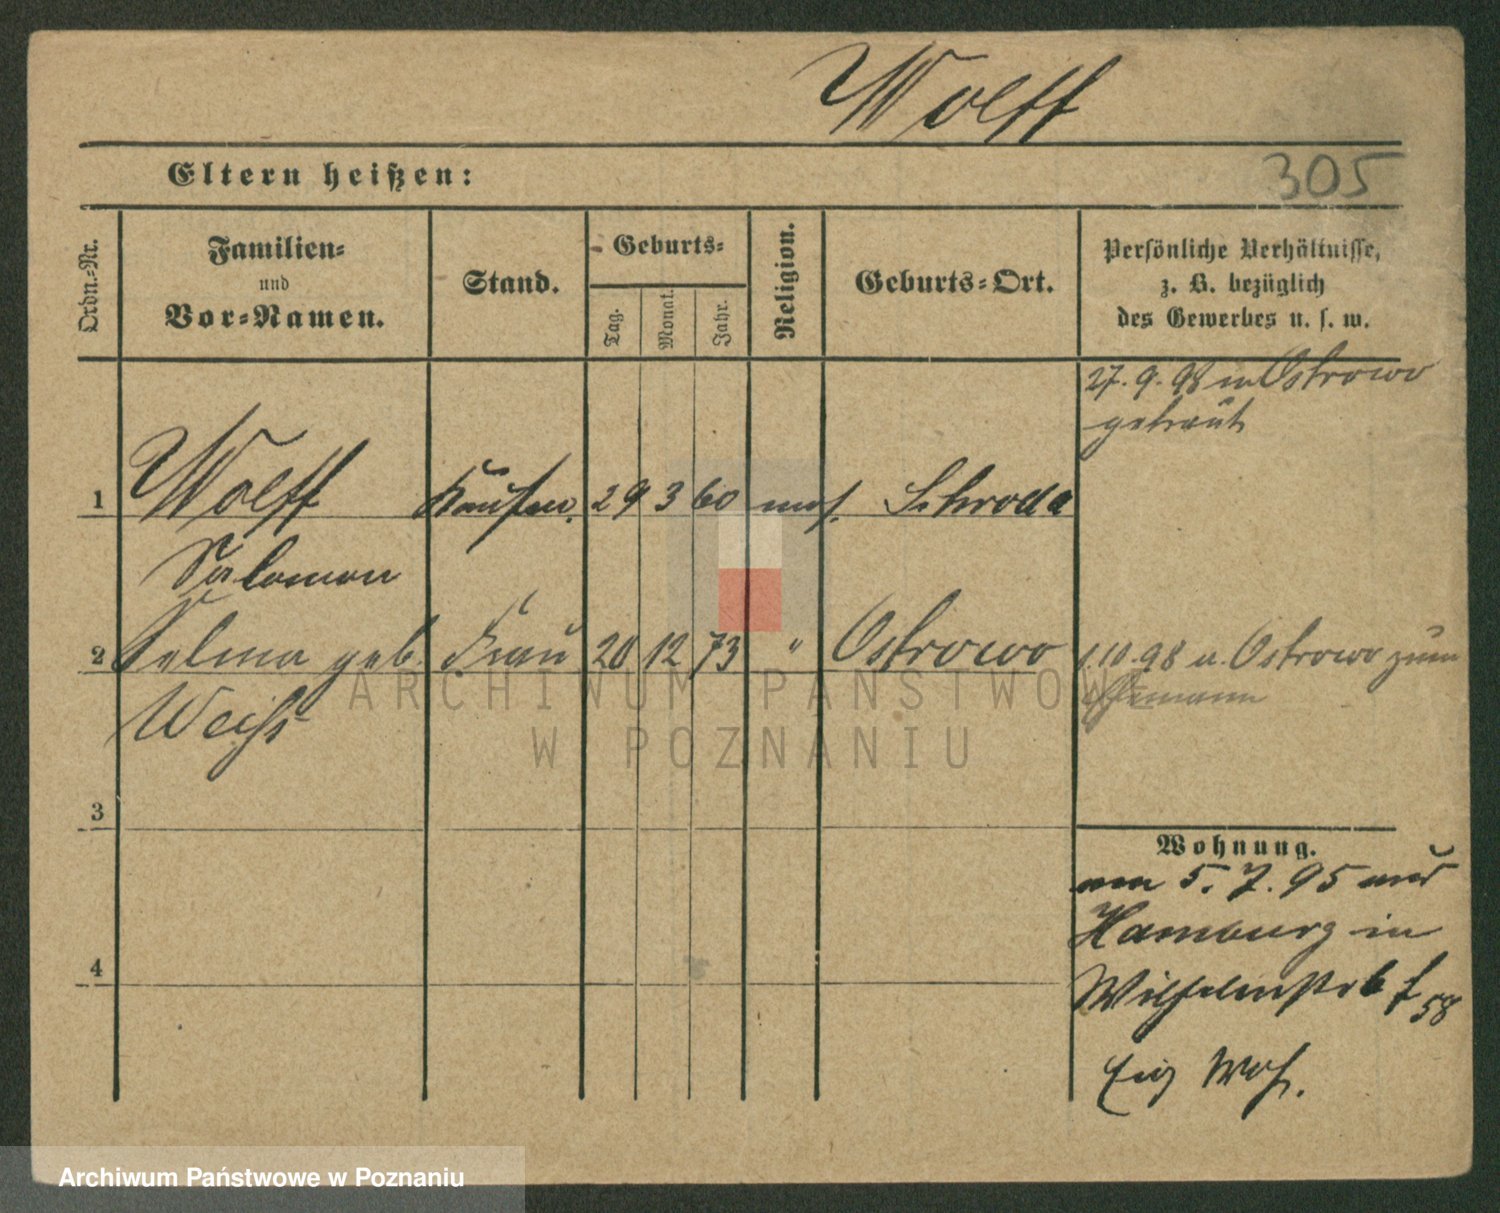 Wolff
Eltern heißen:
305
Ordn.-Nr.
Familien-
und
Vor-Namen.
Stand.
Geburts-
Tag.
Monat.
Jahr.
Religion.
Geburts-Ort.
Persönliche Verhältnisse,
z. B. bezüglich
des Gewerbes u. s. w.
27. 9. 98 in Ostrowo
getraut
1 Wolff Kaufm. 29 3 60 mos. Schroda
Salomon
2 Selma geb. Frau 20 12 73 " Ostrowo
1.10.98 v. Ostrowo zum
Ehemann
Weihs
3
Wohnung.
5. 7. 95 aus
Hamburg in
Wilhelmstr. 58
4
Eig Woh.
ARCHIWUM PAŃSTWOWE
W POZNANIU
Archiwum Państwowe w Poznaniu